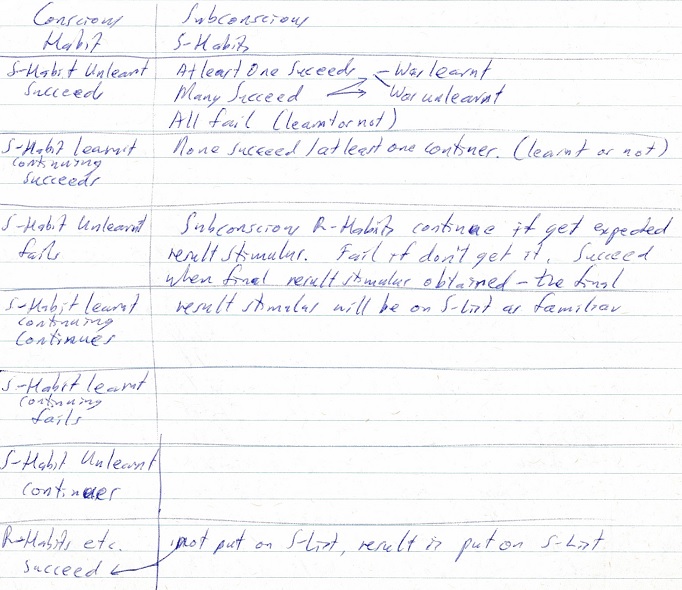 Conscious Subconscious
Habit S-Habits
S-Habit Unlearnt At least One Succeeds - Was learnt
Succeeds Many Succeed Was unlearnt
All fail (learnt or not)
S-Habit learnt None succeed / at least one continues. (learnt or not)
continuing
succeeds
S-Habit Unlearnt Subconscious R-Habits continue if get expected
fails result stimulus. Fail if don't get it. Succeed
when final result stimulus obtained - the final
S-Habit learnt result stimulus will be on S-List as familiar
continuing
Continues
S-Habit learnt
continuing
fails
S-Habit Unlearnt
continues
R-Habits etc. not put on S-List, result is put on S-List
Succeed